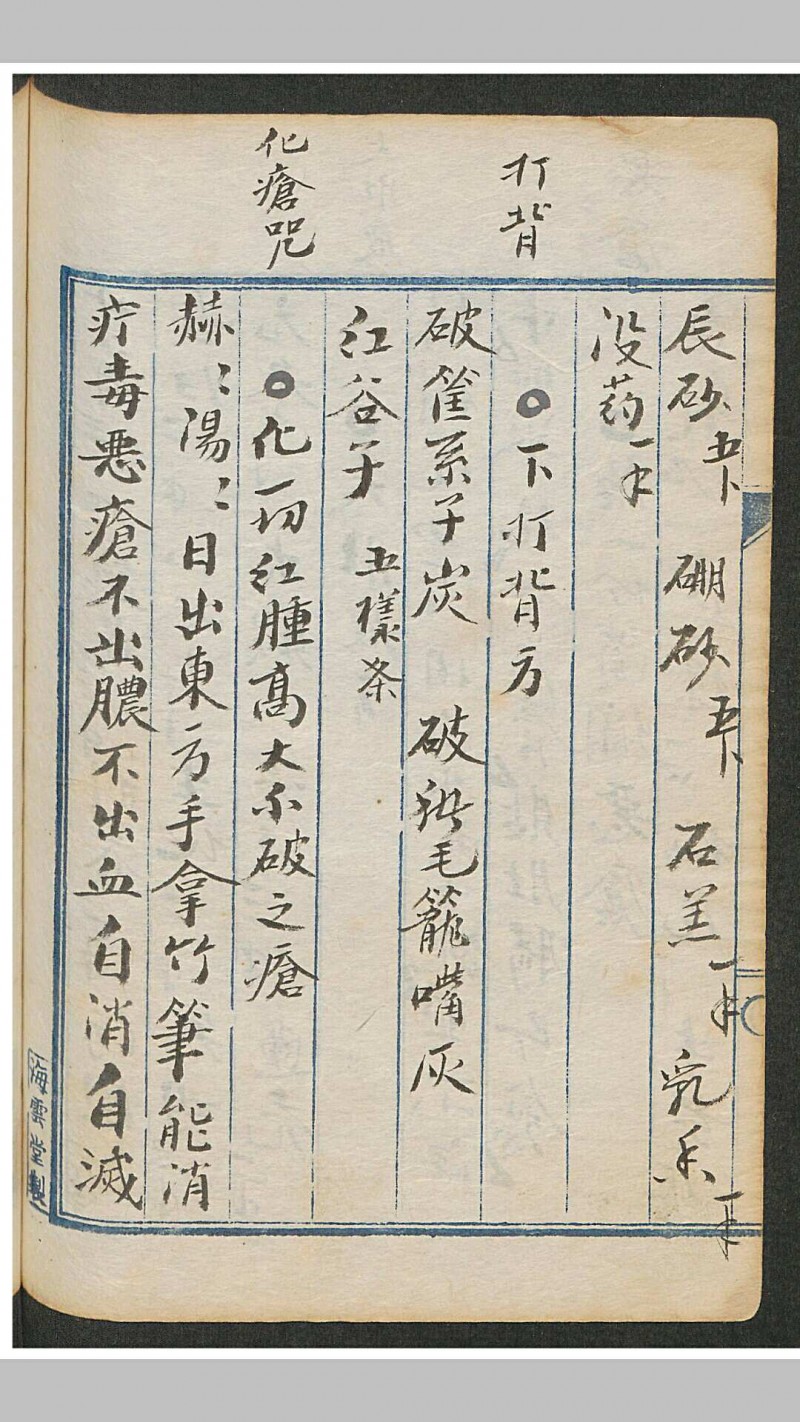 打背
化瘡咒
辰砂五卜 硼砂五卜 石羔一才 乳香一才
没药一才
○下打背方
破筐系子炭 破毛籠嘴灰
红谷子 五樣条
○化一切红腫高大不破之瘡
赫〻陽〻日出東方手拿竹筆能消
疔毒惡瘡不出膿不出血自消自滅
海雲堂製